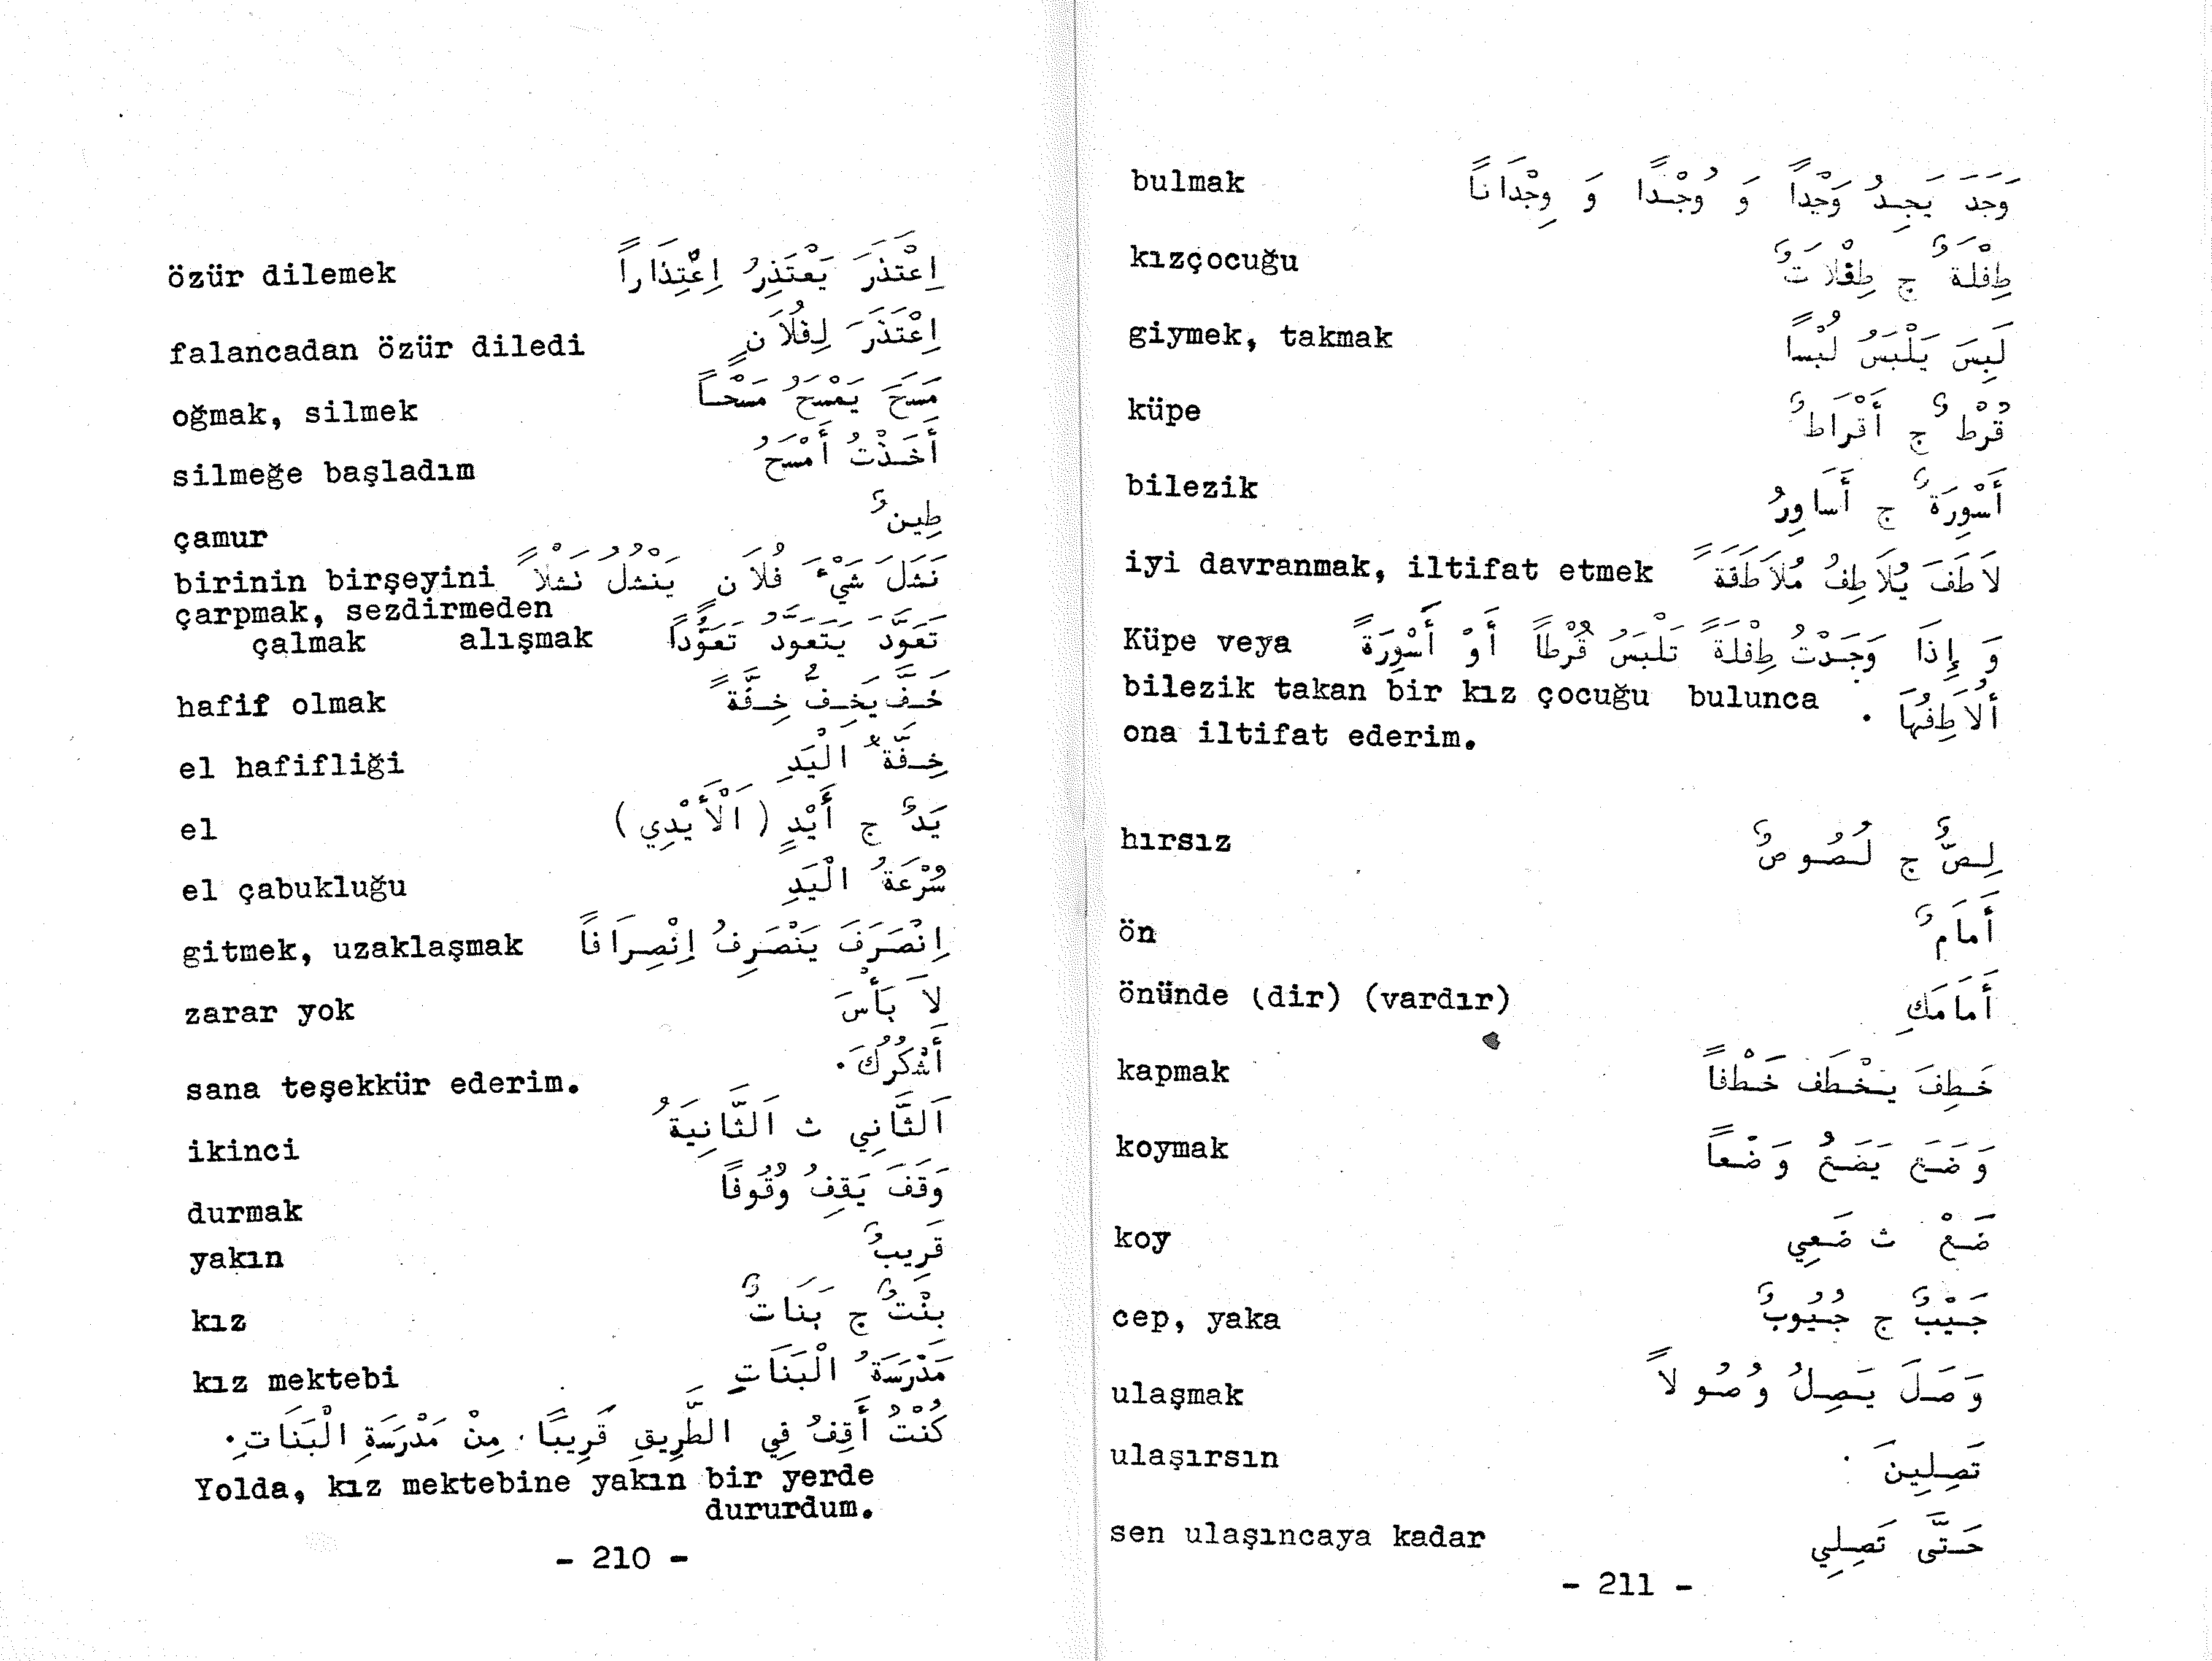 özür dilemek اِعْتَذَرَ يَعْتَذِرُ اِعْتِذَاراً
falancadan özür diledi اِعْتَذَرَ لِفُلَانٍ
oğmak, silmek مَسَحَ يَمْسَحُ مَسْحاً
silmeğe başladım أَخَذْتُ أَمْسَحُ
çamur طِينٌ
birinin birşeyini نَشَلَ شَيْءَ فُلَانٍ يَنْشُلُ نَشْلاً
çarpmak, sezdirmeden
çalmak alışmak تَعَوَّدَ يَتَعَوَّدُ تَعَوُّداً
hafif olmak خَفَّ يَخِفُّ خِفَّةً
el hafifliği خِفَّةُ الْيَدِ
el يَدٌ ج أَيْدٍ (اَلْأَيْدِي)
el çabukluğu سُرْعَةُ الْيَدِ
gitmek, uzaklaşmak اِنْصَرَفَ يَنْصَرِفُ اِنْصِرَافاً
zarar yok لاَ بَأْسَ
sana teşekkür ederim. أَشْكُرُكَ.
ikinci اَلثَّانِي ث اَلثَّانِيَةُ
durmak وَقَفَ يَقِفُ وُقُوفاً
yakın قَرِيبٌ
kız بِنْتٌ ج بَنَاتٌ
kız mektebi مَدْرَسَةُ الْبَنَاتِ
كُنْتُ أَقِفُ فِي الطَّرِيقِ قَرِيبًا مِنْ مَدْرَسَةِ الْبَنَاتِ.
Yolda, kız mektebine yakın bir yerde
dururdum.
- 210 -
bulmak وَجَدَ يَجِدُ وَجْداً وَ وُجْداً وَ وِجْدَاناً
kızçocuğu طِفْلَةٌ ج طِفْلَاتٌ
giymek, takmak لَبِسَ يَلْبَسُ لُبْساً
küpe قُرْطٌ ج أَقْرَاطٌ
bilezik أَسْوِرَةٌ ج أَسَاوِرُ
iyi davranmak, iltifat etmek لاَطَفَ يُلاَطِفُ مُلاَطَفَةً
Küpe veya وَ إِذَا وَجَدْتُ طِفْلَةً تَلْبَسُ قُرْطاً أَوْ أَسْوِرَةً
bilezik takan bir kız çocuğu bulunca أُلَاطِفُهَا .
ona iltifat ederim.
hırsız لِصٌّ ج لُصُوصٌ
ön أَمَامٌ
önünde (dir) (vardır) أَمَامَكِ
kapmak خَطِفَ يَخْطَف خَطْفاً
koymak وَضَعَ يَضَعُ وَضْعاً
koy ضَعْ ث ضَعِي
cep, yaka جَيْبٌ ج جُيُوبٌ
ulaşmak وَصَلَ يَصِلُ وُصُولاً
ulaşırsın تَصِلِينَ
sen ulaşıncaya kadar حَتَّى تَصِلِي
- 211 -